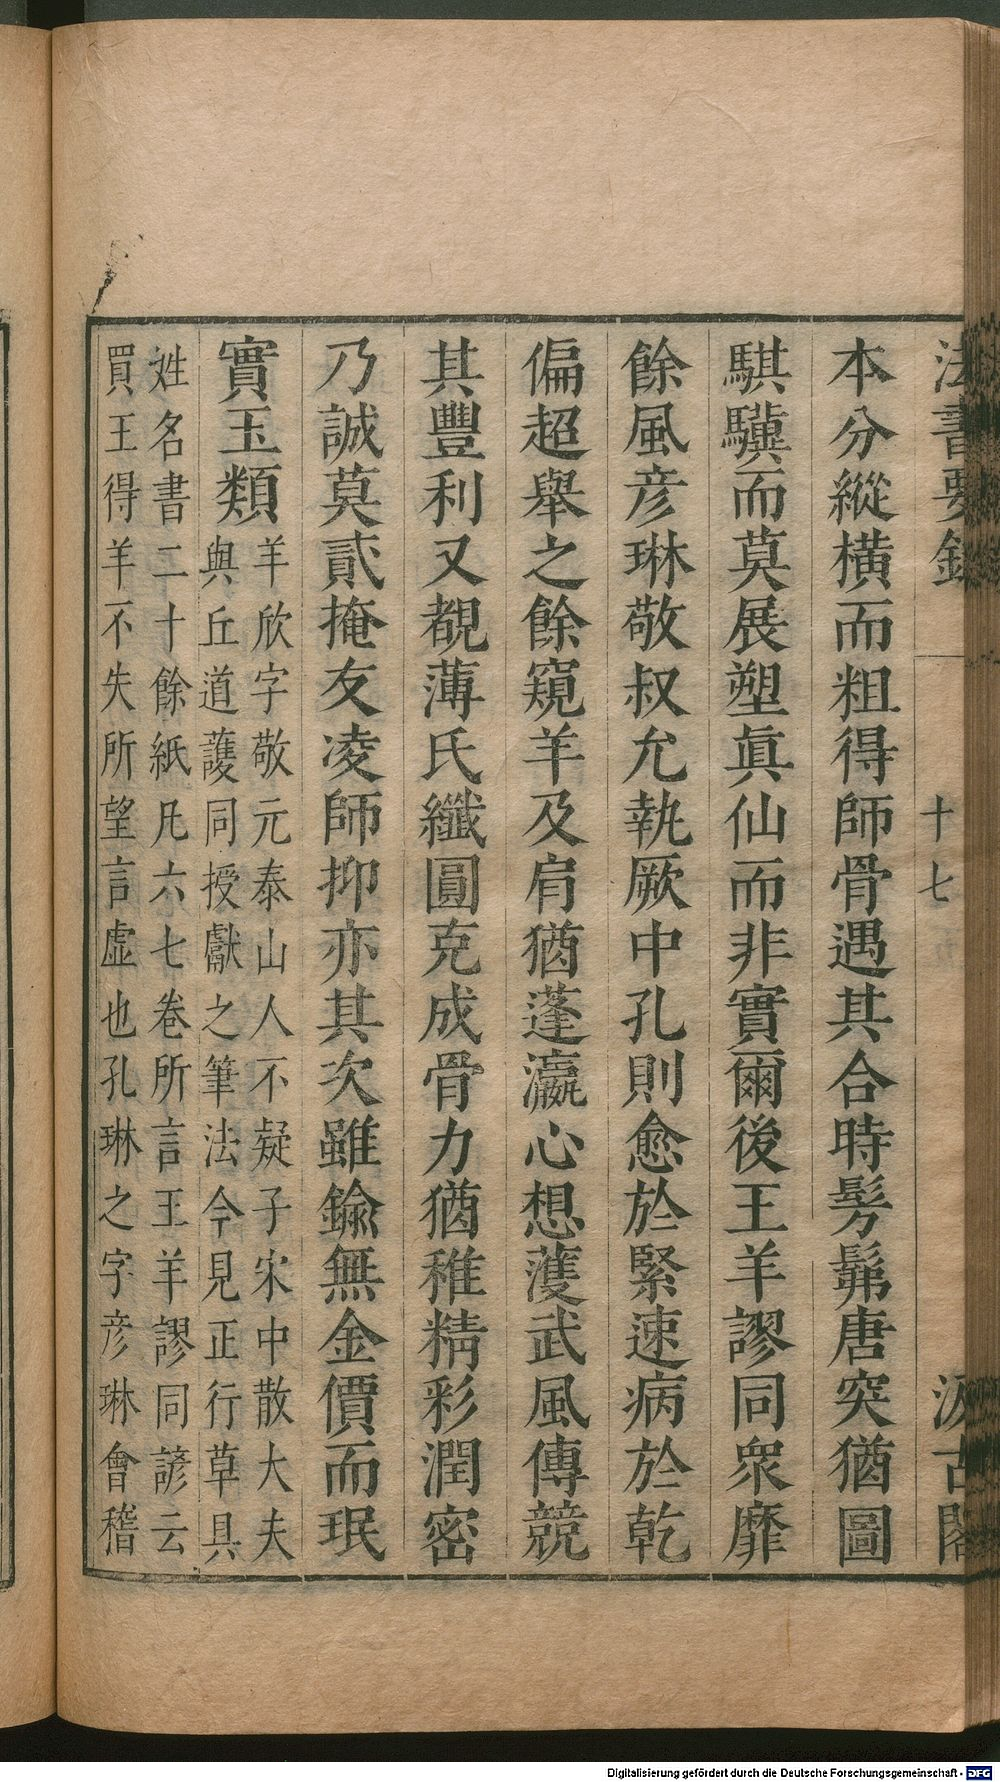 法書要錄
十七
汲古閣
本分縱橫而粗得師骨遇其合時髣髴唐突猶圖
騏驥而莫展塑眞仙而非實爾後王羊謬同衆靡
餘風彦琳敬叔允執厥中孔則愈於緊速病於乾
偏超舉之餘窺羊及肩猶蓬瀛心想䕶武風傳競
其豐利又覩薄氏纖圓克成骨力猶稚精彩潤密
乃誠莫貳掩友凌師抑亦其次雖鍮無金價而珉
實玉類
羊欣字敬元泰山人不疑子宋中散大夫
與丘道護同授獻之筆法今見正行草具
姓名書二十餘紙凡六七卷所言王羊謬同諺云
買王得羊不失所望言虛也孔琳之字彦琳會稽
Digitalisierung gefördert durch die Deutsche Forschungsgemeinschaft - DFG